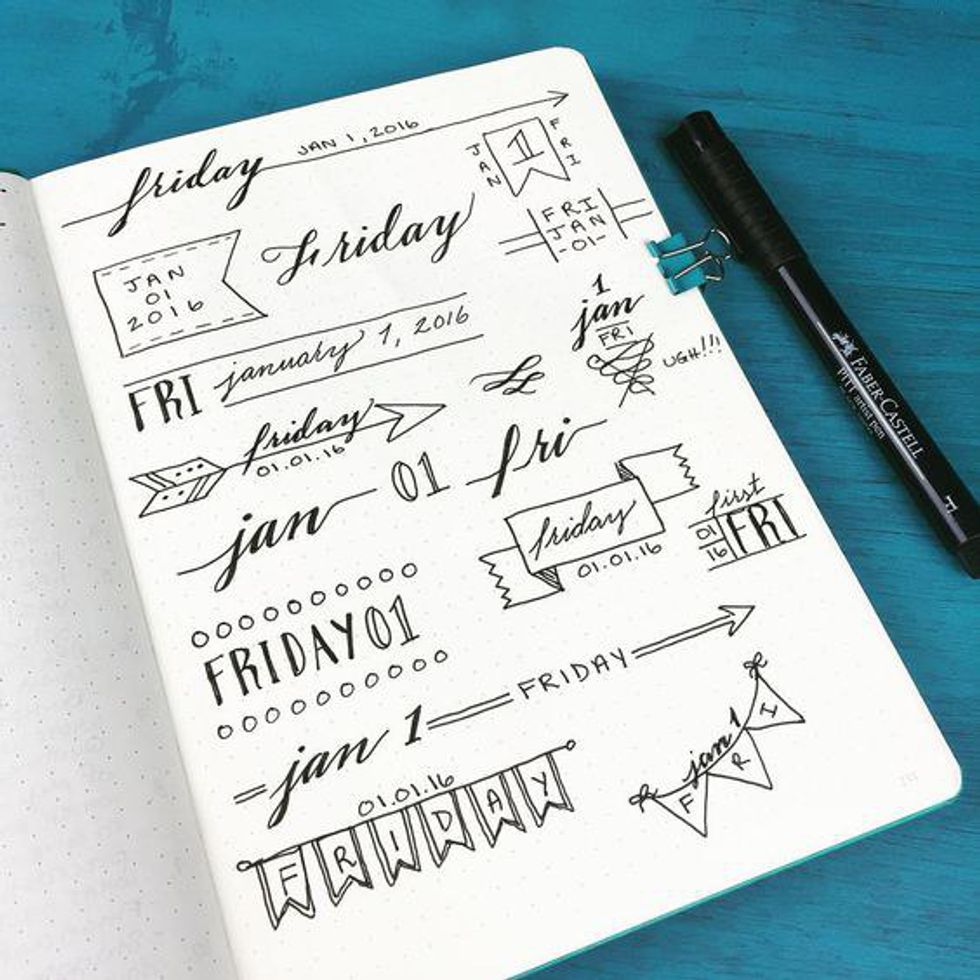 friday JAN 1, 2016
JAN 1 FRI
Friday
FRI
JAN
-01-
JAN
01
2016
1
jan
FRI
UGH!!!
FRI january 1, 2016
friday
01.01.16
jan 01 fri
friday
01.01.16
first
01
16
FRI
FRIDAY 01
jan 1 FRIDAY
jan 1
F R I
01.01.16
FRIDAY
FABER-CASTELL
PITT artist pen
F